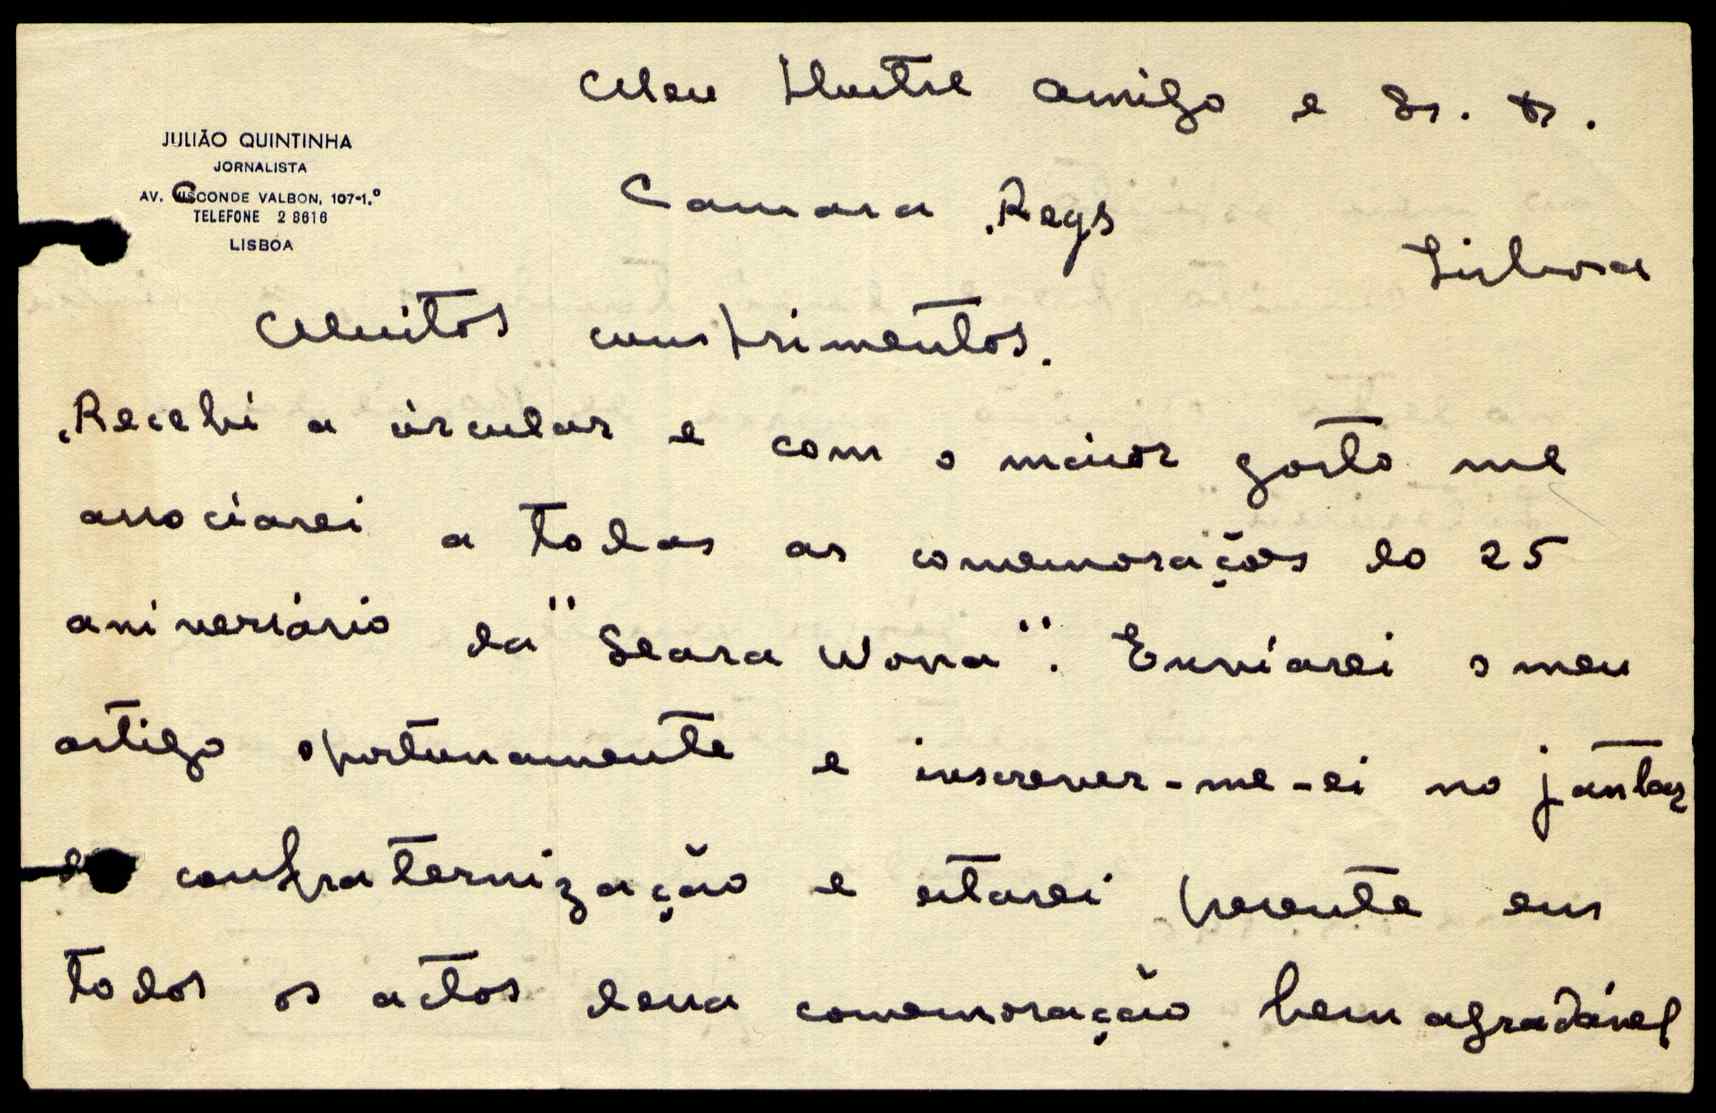 Meu Ilustre amigo e Sr. Dr.
JULIÃO QUINTINHA
JORNALISTA
AV. CONDE VALBON, 107-1.º
TELEFONE 2 8616
LISBOA
Camara Reys
Lisboa
Muitos cumprimentos.
Recebi a circular e com o maior gosto me
associarei a todas as comemorações do 25
aniversário da "Seara Nova". Enviarei o meu
artigo oportunamente e inscrever-me-ei no jantar
de confraternização e estarei presente em
todos os actos dessa comemoração bem agradável